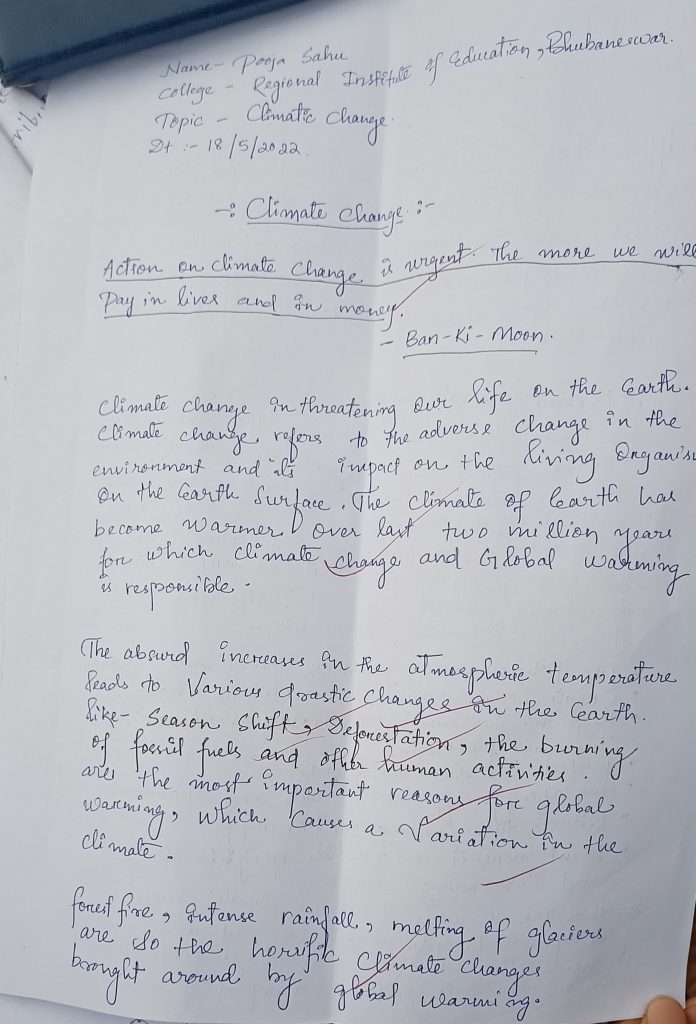 Name - Pooja Sahu
College - Regional Institute of Education, Bhubaneswar.
Topic - Climatic Change.
Dt :- 18/5/2022.
-: Climate Change :-
Action on climate change is urgent. The more we will
Pay in lives and in money.
- Ban-Ki-Moon.
Climate change in threatening our life on the Earth.
Climate change refers to the adverse change in the
environment and its impact on the living Organis
on the Earth Surface. The climate of Earth has
become warmer over last two million years
for which climate change and Global warming
is responsible.
The absurd increases in the atmospheric temperature
leads to various drastic changes in the Earth.
like- Season Shift, Deforestation, the burning
of fossil fuels and other human activities.
are the most important reasons fore global
warming, which causes a variation in the
climate.
forest fire, intense rainfall, melting of glaciers
are so the horrific climate changes
brought around by global warming.